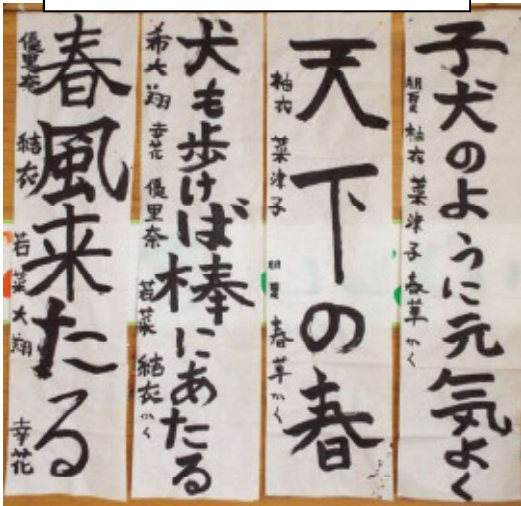 子犬のように元気よく
朋夏 柚衣 菜津子 春草 かく
天下の春
柚衣 菜津子 朋夏 春草 かく
犬も歩けば棒にあたる
希 大翔 幸花 優里奈 若菜 結衣 かく
春風来たる
優里奈 結衣 若菜 大翔 幸花